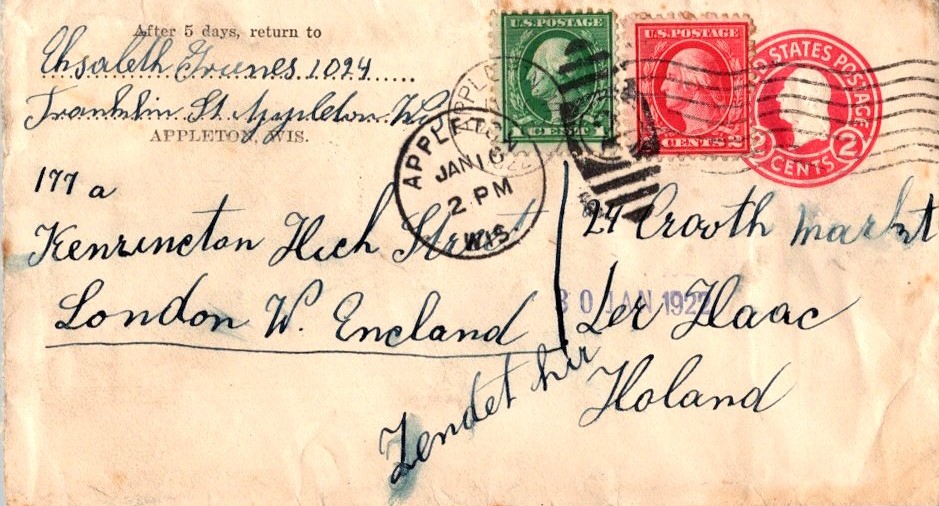 After 5 days, return to
Elisabeth Grienes 1024
Franklin St. Appleton. Wis
APPLETON, WIS.
U.S. POSTAGE
1 CENT 1
U.S. POSTAGE
CENTS 2
STATES POSTAGE
2 CENTS 2
APPLETON
JAN 16
2 PM
WIS.
177 a
Kenrincton Hich Street
London W. Encland
24 Grooth Markt
30 JAN 1922
Der Haac
Holand
Zendet hir